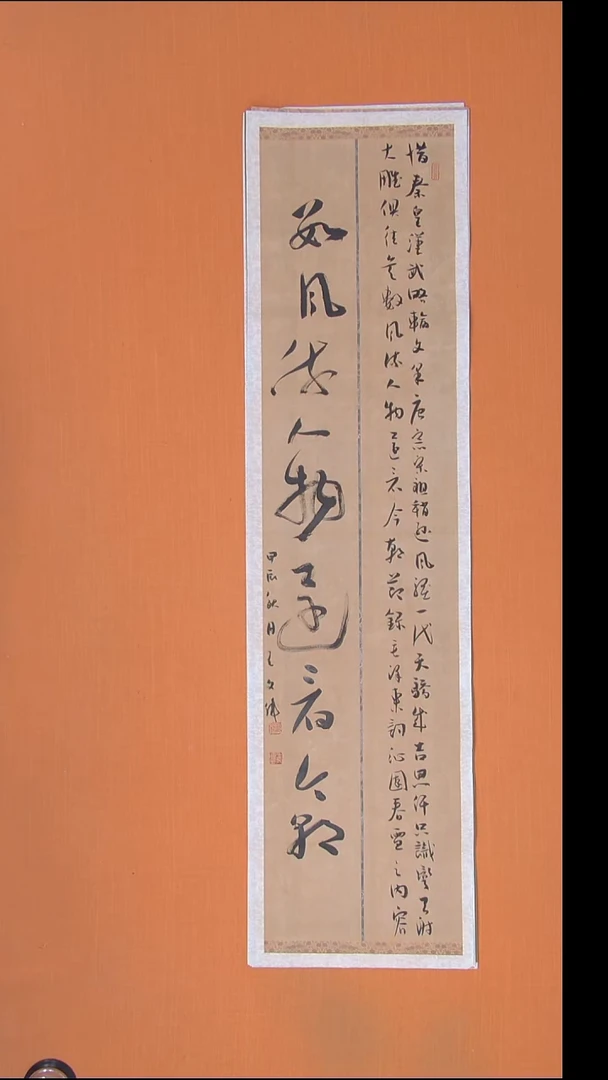 惜秦皇漢武略輸文采唐宗宋祖稍遜风騷一代天驕成吉思汗只識彎弓射
大雕俱往矣數风流人物還看今朝節錄毛澤東詞沁園春雪之內容
數风流人物還看今朝
甲辰秋月王文